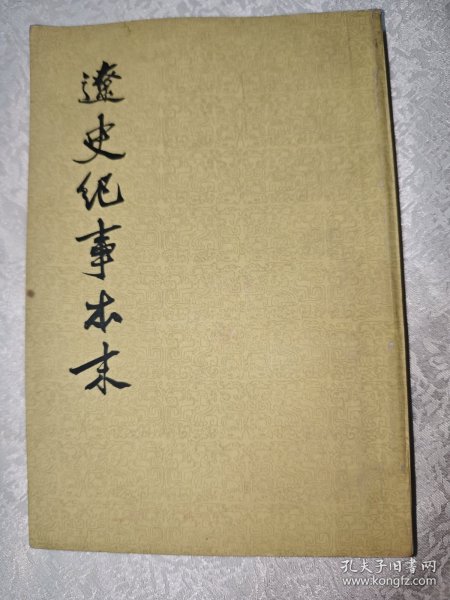 遼史紀事本末
孔夫子旧书网
www.kongfz.com